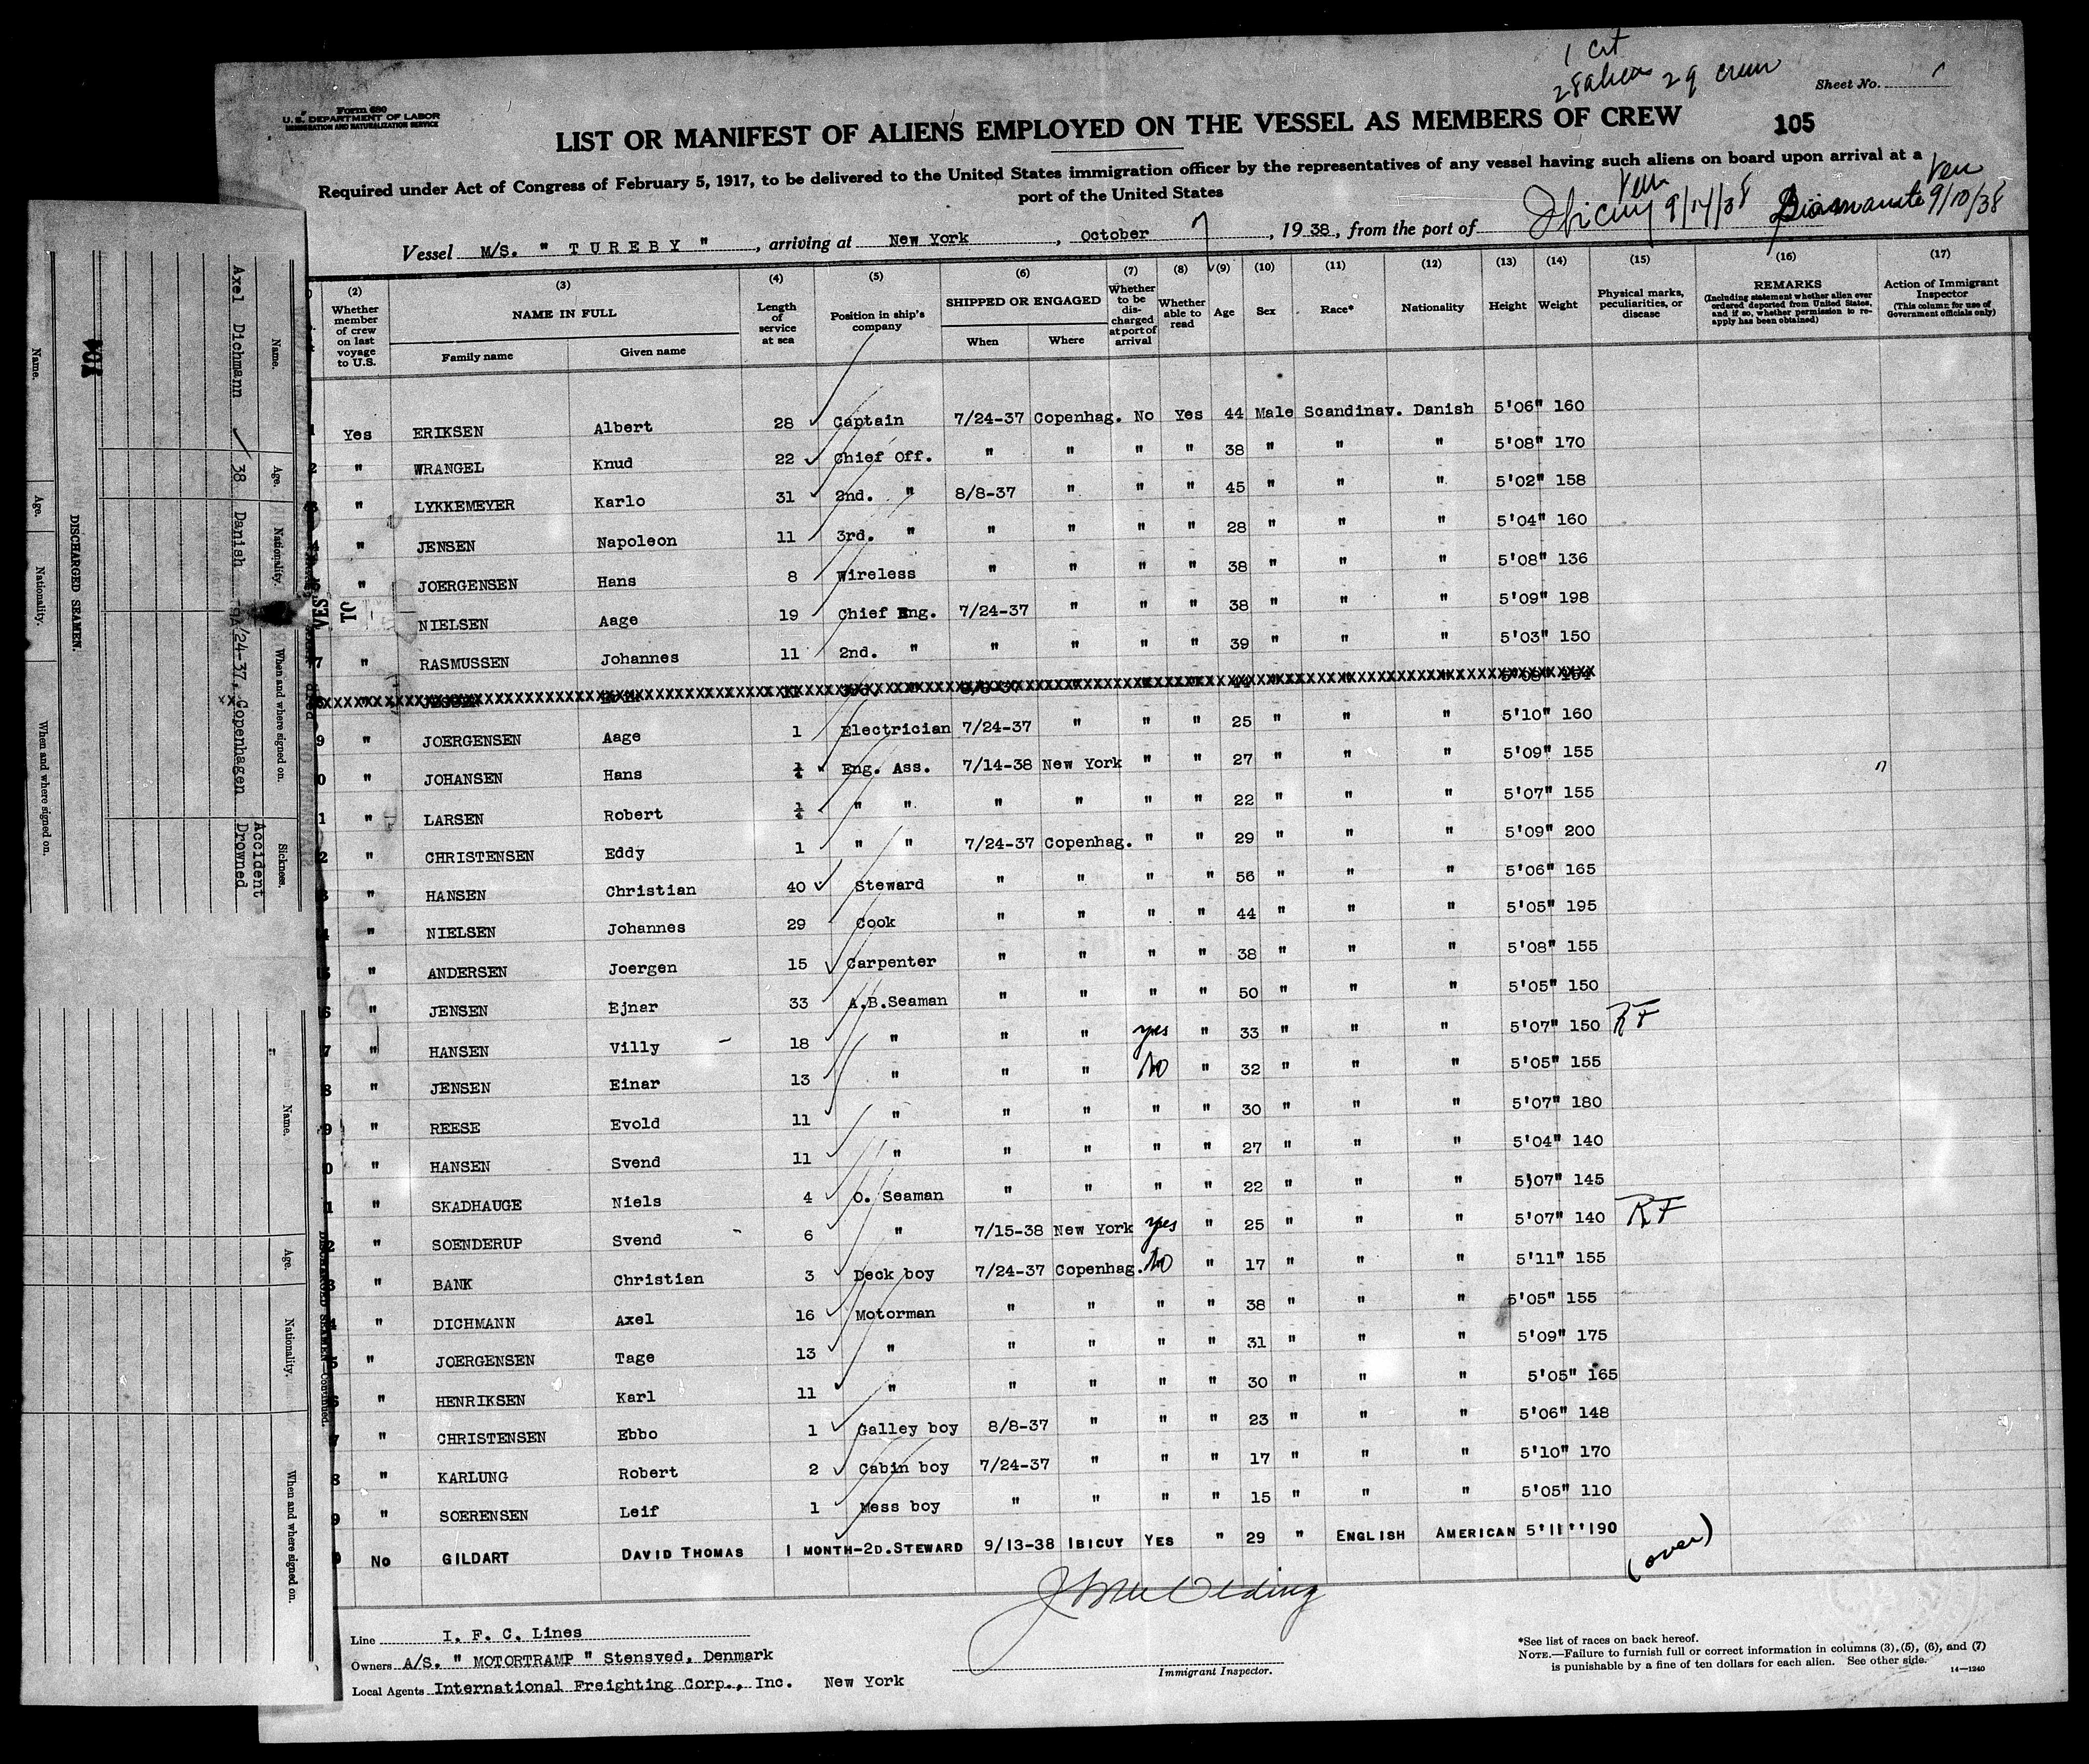 1 Cit
28 alien 29 crew
Sheet No.
Form 680
U. S. DEPARTMENT OF LABOR
IMMIGRATION AND NATURALIZATION SERVICE
LIST OR MANIFEST OF ALIENS EMPLOYED ON THE VESSEL AS MEMBERS OF CREW
105
Required under Act of Congress of February 5, 1917, to be delivered to the United States immigration officer by the representatives of any vessel having such aliens on board upon arrival at a
port of the United States
Vessel M/S. " TUREBY ", arriving at New York, October 7, 1938, from the port of Ibicuy 9/14/38 Diamante 9/10/38
(2) (3) (4) (5) (6) (7) (8) (9) (10) (11) (12) (13) (14) (15) (16) (17)
Whether member of crew on last voyage to U.S.
NAME IN FULL
Family name
Given name
Length of service at sea
Position in ship's company
SHIPPED OR ENGAGED
When
Where
Whether to be discharged at port of arrival
Whether able to read
Age
Sex
Race*
Nationality
Height
Weight
Physical marks, peculiarities, or disease
REMARKS
(Including statement whether alien ever ordered deported from United States, and if so, whether permission to reapply has been obtained)
Action of Immigrant Inspector
(This column for use of Government officials only)
1 Yes ERIKSEN Albert 28 Captain 7/24-37 Copenhag. No Yes 44 Male Scandinav. Danish 5'06" 160
2 " WRANGEL Knud 22 Chief Off. " " " " 38 " " " 5'08" 170
" LYKKEMEYER Karlo 31 2nd. " 8/8-37 " " " 45 " " " 5'02" 158
" JENSEN Napoleon 11 3rd. " " " " " 28 " " " 5'04" 160
" JOERGENSEN Hans 8 Wireless " " " " 38 " " " 5'08" 136
NIELSEN Aage 19 Chief Eng. 7/24-37 " " " 38 " " " 5'09" 198
7 " RASMUSSEN Johannes 11 2nd. " " " " " 39 " " " 5'03" 150
9 " JOERGENSEN Aage 1 Electrician 7/24-37 " " " 25 " " " 5'10" 160
0 " JOHANSEN Hans ¼ Eng. Ass. 7/14-38 New York " " 27 " " " 5'09" 155
1 " LARSEN Robert ¼ " " " " " " 22 " " " 5'07" 155
2 " CHRISTENSEN Eddy 1 " " 7/24-37 Copenhag. " " 29 " " " 5'09" 200
3 " HANSEN Christian 40 Steward " " " " 56 " " " 5'06" 165
4 " NIELSEN Johannes 29 Cook " " " " 44 " " " 5'05" 195
5 " ANDERSEN Joergen 15 Carpenter " " " " 38 " " " 5'08" 155
6 " JENSEN Ejnar 33 A.B.Seaman " " " " 50 " " " 5'05" 150
7 " HANSEN Villy 18 " " " yes " 33 " " " 5'07" 150 RF
8 " JENSEN Einar 13 " " " No " 32 " " " 5'05" 155
9 " REESE Evold 11 " " " " " 30 " " " 5'07" 180
0 " HANSEN Svend 11 " " " " " 27 " " " 5'04" 140
1 " SKADHAUGE Niels 4 O. Seaman " " " " 22 " " " 5'07" 145
2 " SOENDERUP Svend 6 " 7/15-38 New York yes " 25 " " " 5'07" 140 RF
3 " BANK Christian 3 Deck boy 7/24-37 Copenhag. No " 17 " " " 5'11" 155
4 " DICHMANN Axel 16 Motorman " " " " 38 " " " 5'05" 155
5 " JOERGENSEN Tage 13 " " " " " 31 " " " 5'09" 175
6 " HENRIKSEN Karl 11 " " " " " 30 " " " 5'05" 165
7 " CHRISTENSEN Ebbo 1 Galley boy 8/8-37 " " " 23 " " " 5'06" 148
8 " KARLUNG Robert 2 Cabin boy 7/24-37 " " " 17 " " " 5'10" 170
9 " SOERENSEN Leif 1 Mess boy " " " " 15 " " " 5'05" 110
0 No GILDART DAVID THOMAS 1 MONTH-2D.STEWARD 9/13-38 IBICUY YES " 29 " ENGLISH AMERICAN 5'11" 190
(over)
Line I. F. C. Lines
Owners A/S. " MOTORTRAMP " Stensved, Denmark
Local Agents International Freighting Corp., Inc. New York
Immigrant Inspector.
*See list of races on back hereof.
NOTE.—Failure to furnish full or correct information in columns (3), (5), (6), and (7)
is punishable by a fine of ten dollars for each alien. See other side.
14—1240
Name. Age. Nationality. When and where signed on.
DISCHARGED SEAMEN.
Name. Age. Nationality. When and where signed on. Sickness.
Axel Dichmann 38 Danish 7/24-37, Copenhagen Accident Drowned
DISCHARGED SEAMEN—Continued.
Name. Age. Nationality. When and where signed on.